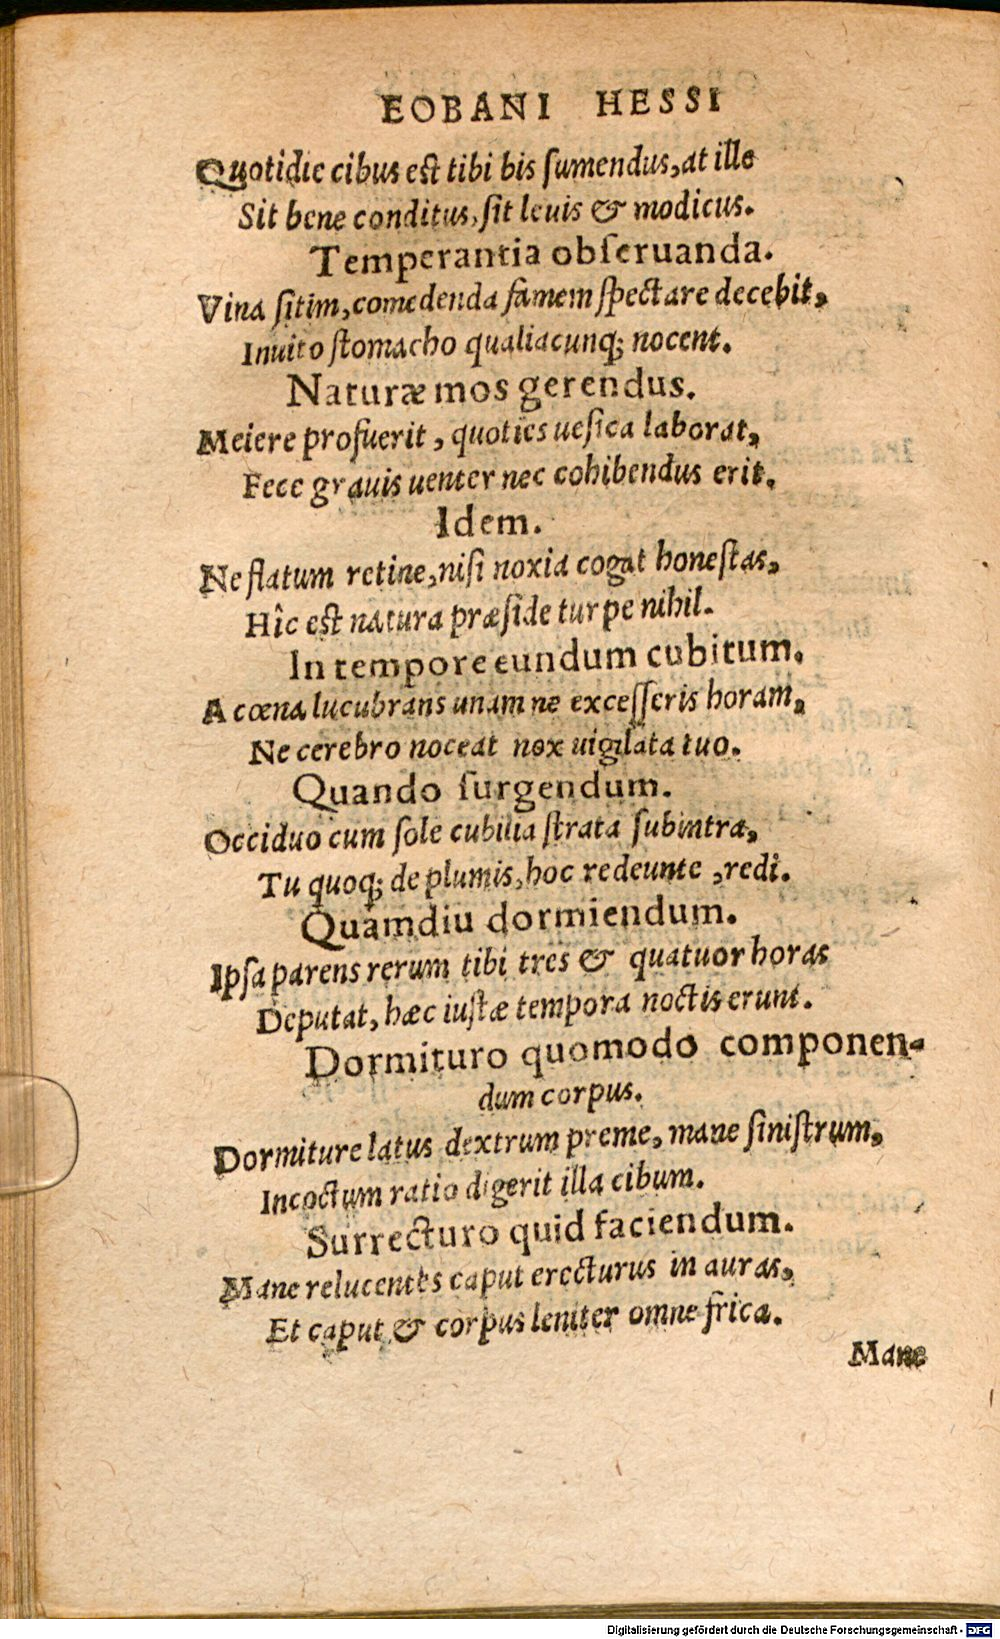 EOBANI HESSI
Quotidie cibus est tibi bis ſumendus, at ille
Sit bene conditus, ſit leuis & modicus.
Temperantia obſeruanda.
Vina ſitim, comedenda famem ſpectare decebit,
Inuito ſtomacho qualiacunq; nocent.
Naturæ mos gerendus.
Meiere profuerit, quoties ueſica laborat,
Fece grauis uenter nec cohibendus erit.
Idem.
Ne flatum retine, niſi noxia cogat honeſtas,
Hîc est natura præſide turpe nihil.
In tempore eundum cubitum.
A cœna lucubrans unam ne exceſſeris horam,
Ne cerebro noceat nox uigilata tuo.
Quando ſurgendum.
Occiduo cum ſole cubilia ſtrata ſubintra,
Tu quoq; de plumis, hoc redeunte, redi.
Quamdiu dormiendum.
Ipſa parens rerum tibi tres & quatuor horas
Deputat, hæc iuſtæ tempora noctis erunt.
Dormituro quomodo componen-
dum corpus.
Dormiture latus dextrum preme, mane ſiniſtrum,
Incoctum ratio digerit illa cibum.
Surrecturo quid faciendum.
Mane relucentes caput erecturus in auras,
Et caput & corpus leniter omne frica.
Mane
Digitalisierung gefördert durch die Deutsche Forschungsgemeinschaft - DFG